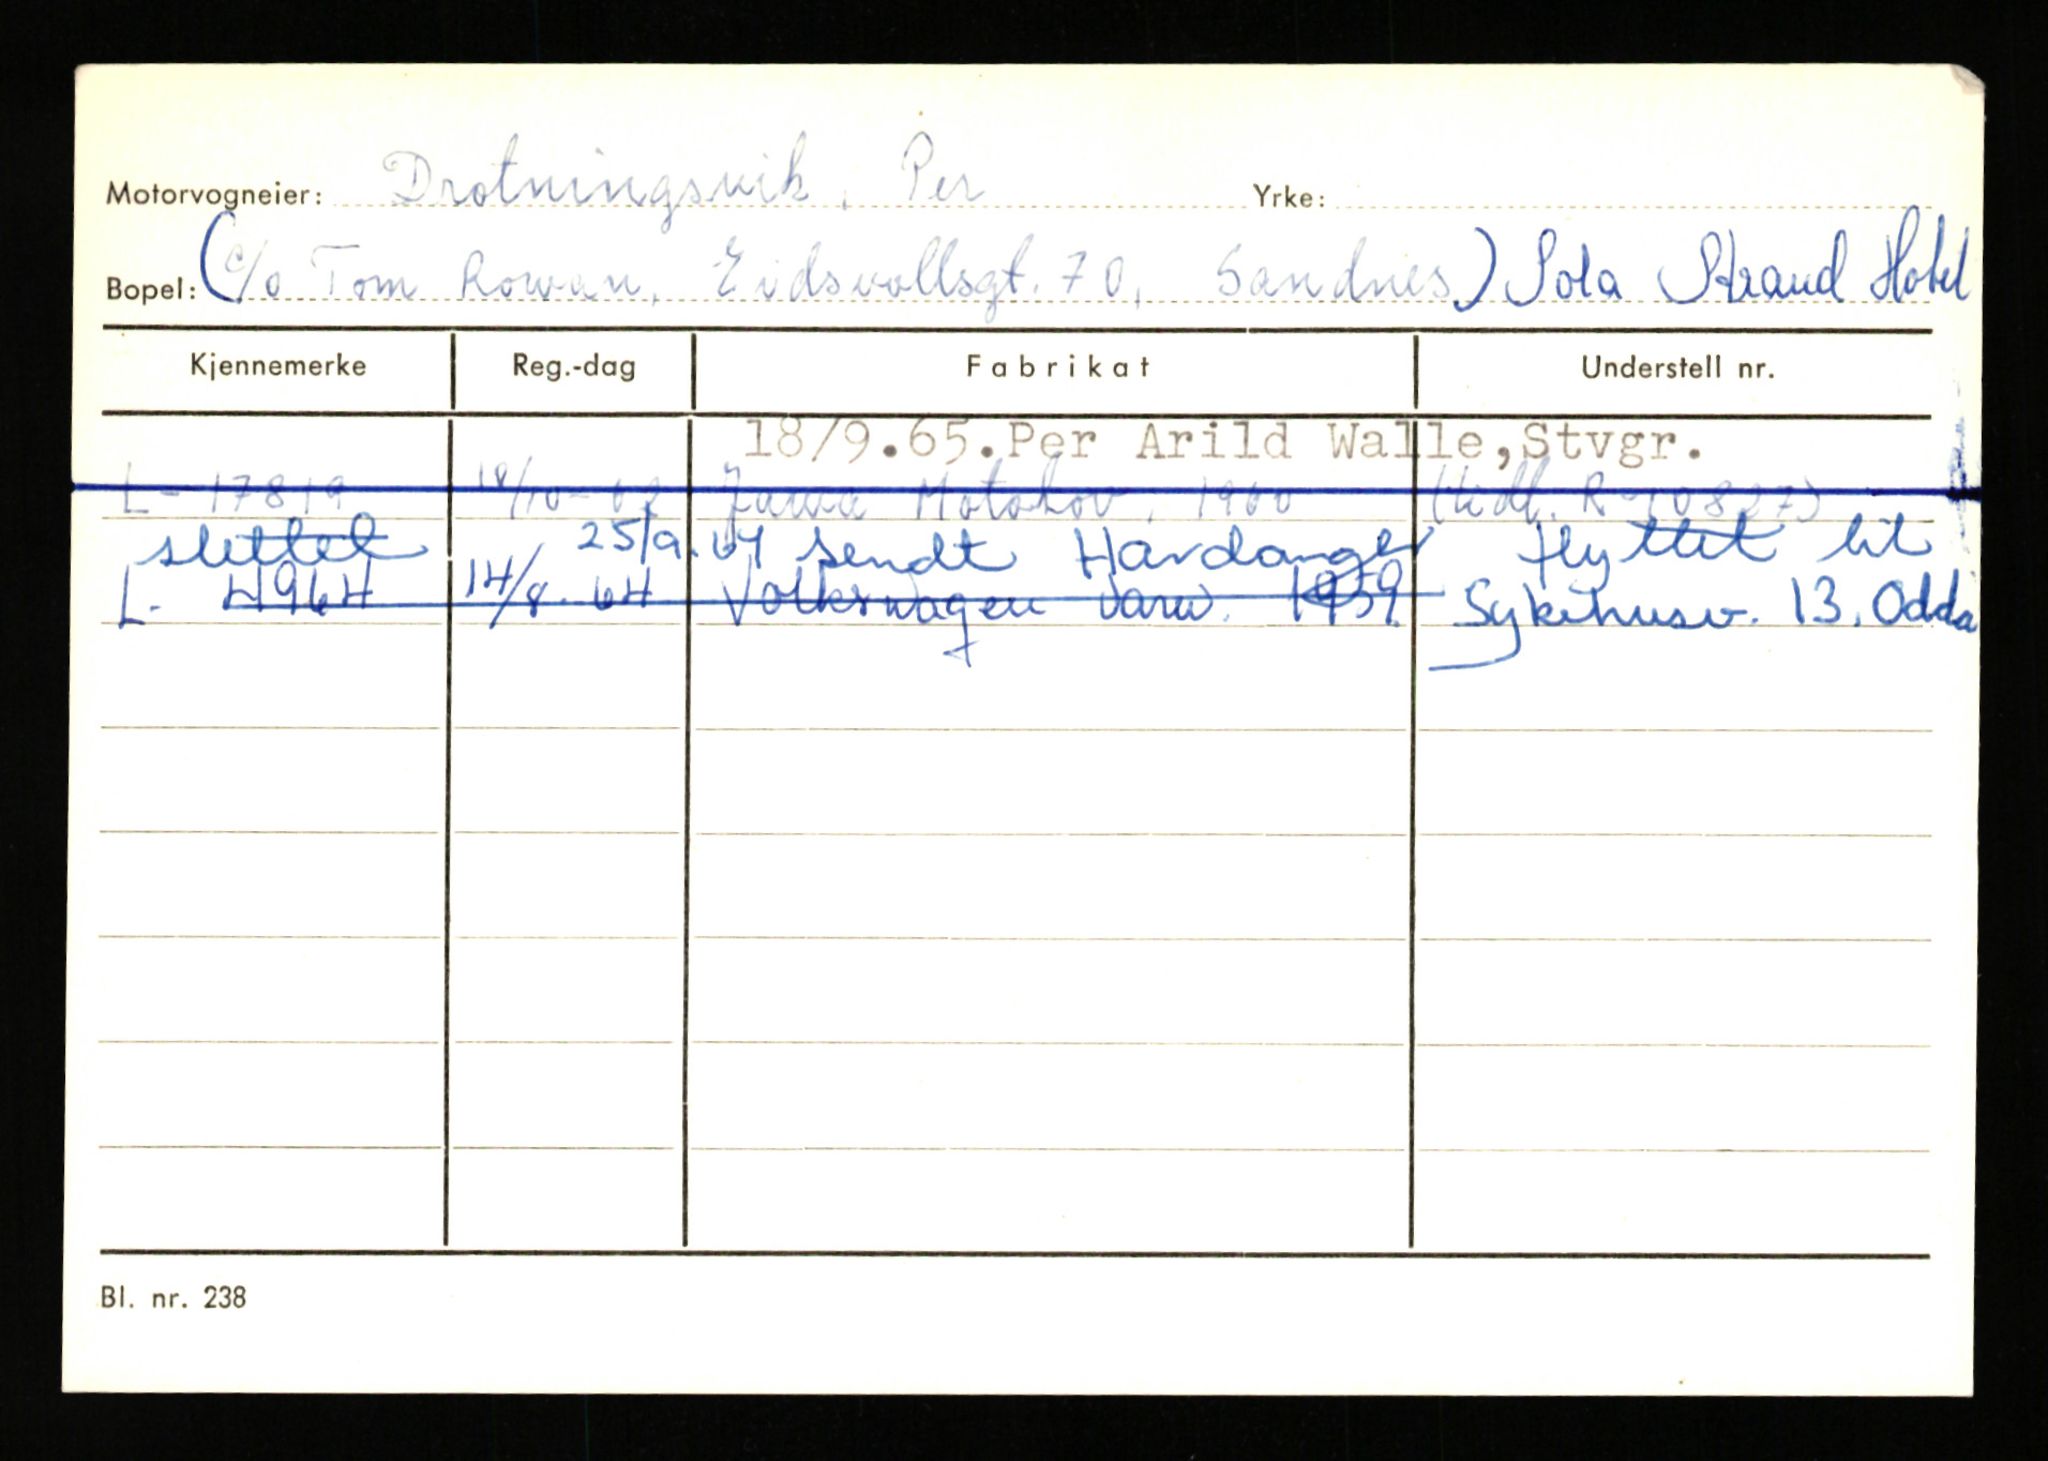 Motorvogneier: Drotningsvik, Per Yrke:
Bopel: (c/o Tom Rowan, Eidsvollsgt. 70, Sandnes) Sola Strand Hotel
Kjennemerke Reg.-dag Fabrikat Understell nr.
18/9.65.Per Arild Walle,Stvgr.
L - 17819 18/10- Jawa Motokov, 1960 (tidl. R-10827)
slettet 25/9.64 sendt Hardanger flyttet hit
L. 4964 14/8.64 Volkswagen varev. 1959 Sykehusv. 13. Odda
Bl. nr. 238